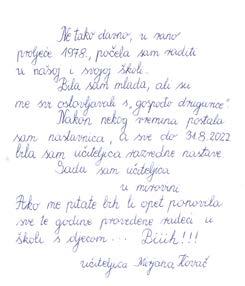 Ne tako davno, u rano
proljeće 1978., počela sam raditi
u našoj i svojoj školi.
Bila sam mlada, ali su
me svi oslovljavali s „gospođo drugarice“.
Nakon nekog vremena postala
sam nastavnica, a sve do 31.8.2022
bila sam učiteljica razredne nastave
Sada sam učiteljica
u mirovini
Ako me pitate bih li opet ponovila
sve te godine provedene radeći u
školi s djecom... Biiih!!!
učiteljica Mirjana Kovač